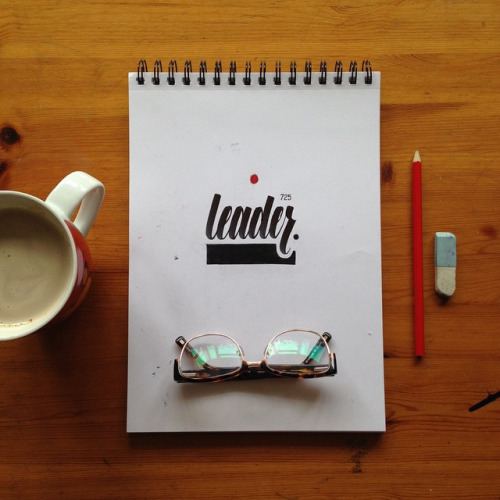 725
leader.